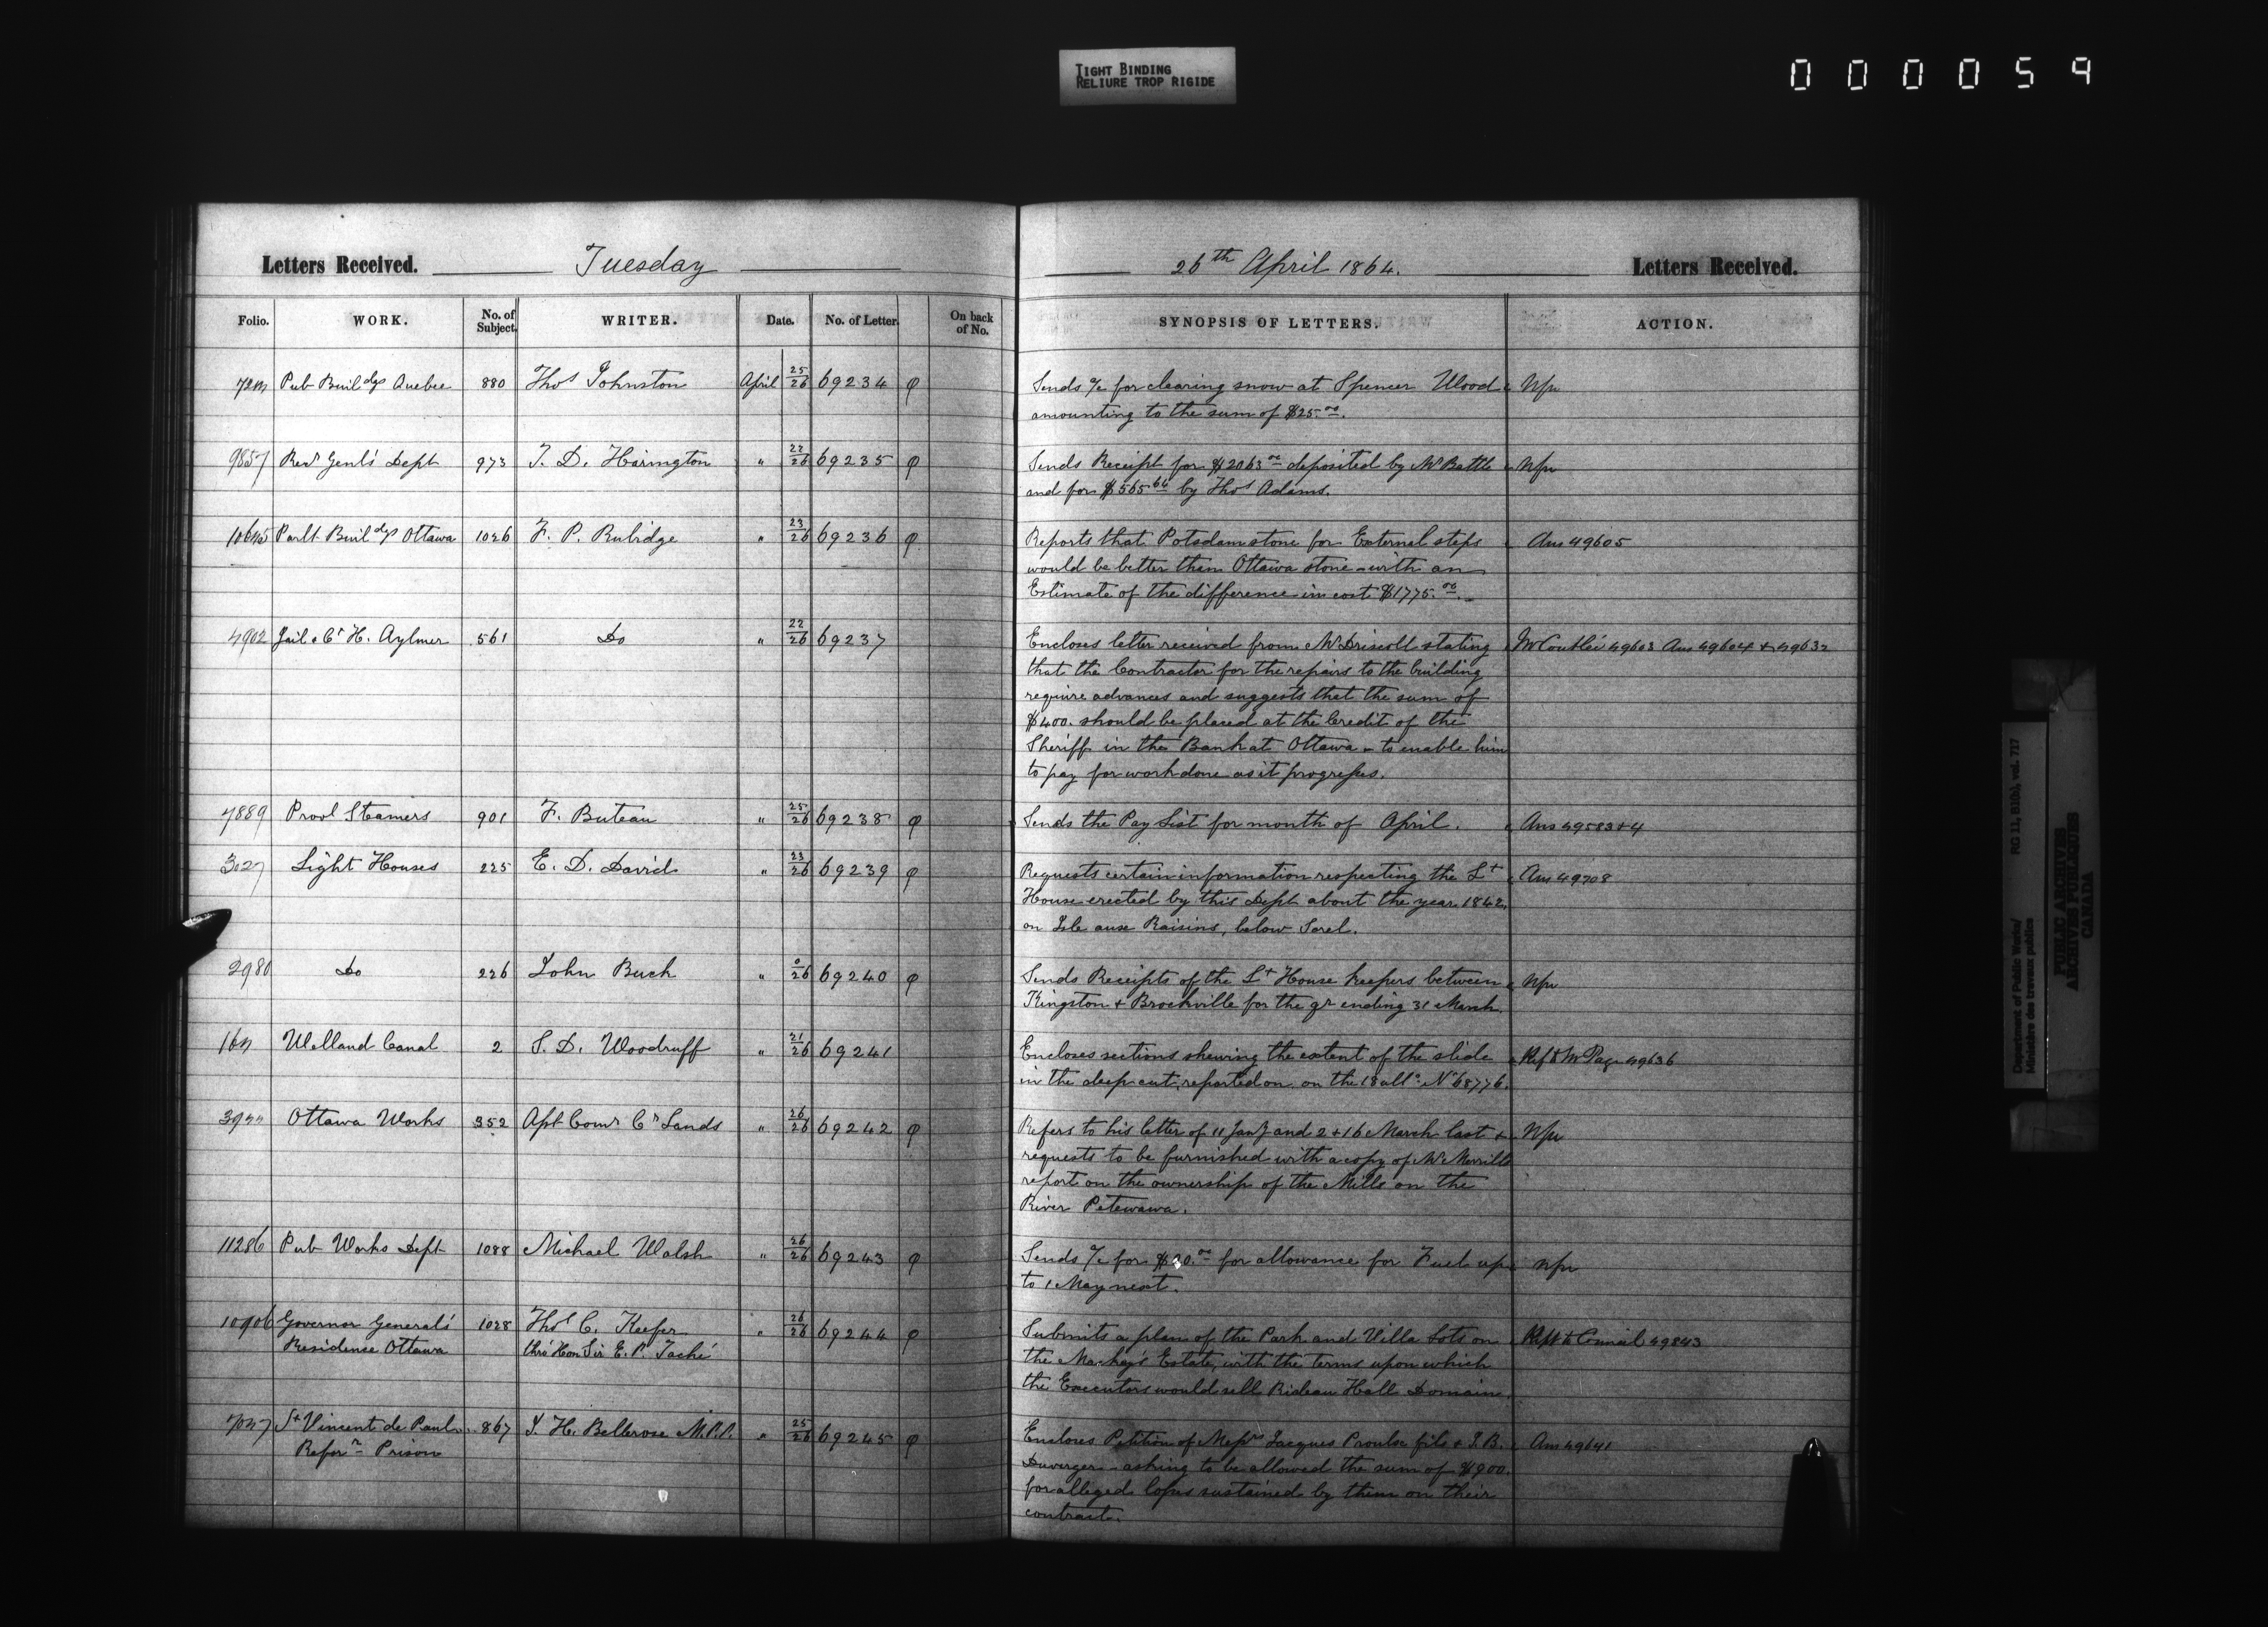 TIGHT BINDING
RELIURE TROP RIGIDE
000059
Letters Received. Tuesday 26th April 1864. Letters Received.
Folio. WORK. No. of Subject. WRITER. Date. No. of Letter. On back of No. SYNOPSIS OF LETTERS. ACTION.
Pub Buildgs Quebec 880 Thos Johnston April 25/26 69234 φ Sends a/c for clearing snow at Spencer Wood Nfu
amounting to the sum of $25.00.
9857 Recr Genl's Dept 973 T. D. Harington " 22/26 69235 φ Sends Receipt for $2063.00 deposited by Mr Battle Nfu
and for $565.64 by Thos Adams.
Parlt Buildgs Ottawa 1026 F. P. Rubidge " 23/26 69236 φ Reports that Potsdam stone for External steps Ans 49605
would be better than Ottawa stone with an
Estimate of the difference in cost $1775.00.
4902 Jail & Ct H. Aylmer 561 Do " 22/26 69237 Encloses letter received from Mr Driscoll stating Mr Coutlée 49603 Ans 49604 + 49632
that the Contractor for the repairs to the building
require advances and suggests that the sum of
$400. should be placed at the Credit of the
Sheriff in the Bank at Ottawa - to enable him
to pay for work done as it progresses.
7889 Provl Steamers 901 F. Buteau " 25/26 69238 φ Sends the Pay List for month of April. Ans 49583+4
3027 Light Houses 225 E. D. David " 23/26 69239 φ Requests certain information respecting the Lt Ans 49708
House erected by this Dept about the year 1842,
on Isle aux Raisins, below Sorel.
2980 Do 226 John Buck " 0/26 69240 φ Sends Receipts of the Lt House keepers between Nfu
Kingston + Brockville for the qr ending 31 March
Welland Canal 2 S. D. Woodruff " 21/26 69241 Encloses sections shewing the extent of the slide Refd to Mr Page 49636
in the deep cut, reported on, on the 18 ulto No 68776.
Ottawa Works 352 Asst Comr Cn Lands " 26/26 69242 φ Refers to his letter of 11 Jany and 2 + 16 March last + Nfu
requests to be furnished with a copy of Mr Merrill's
report on the ownership of the Mills on the
River Petewawa.
11286 Pub Works Dept 1088 Michael Walsh " 26/26 69243 φ Sends a/c for for allowance for Fuel up Nfu
to 1 May next.
10906 Governor General's 1028 Thos C. Keefer " 26/26 69244 φ Submits a plan of the Park and Villa Lots on Rept to Council 49843
Residence Ottawa thro Hon Sir E. P. Taché the Mackay's Estate, with the terms upon which
the Executors would sell Rideau Hall Domain.
St Vincent de Paul 867 J. H. Bellerose M.P.P. " 25/26 69245 φ Encloses Petition of Messrs Jacques Proulx fils + J. B. Ans 49641
Reforn Prison Duverger - asking to be allowed the sum of $900.
for alleged losses sustained by them on their
contract.
Department of Public Works/
Ministère des travaux publics
RG 11, B1(b), vol. 717
PUBLIC ARCHIVES
ARCHIVES PUBLIQUES
CANADA